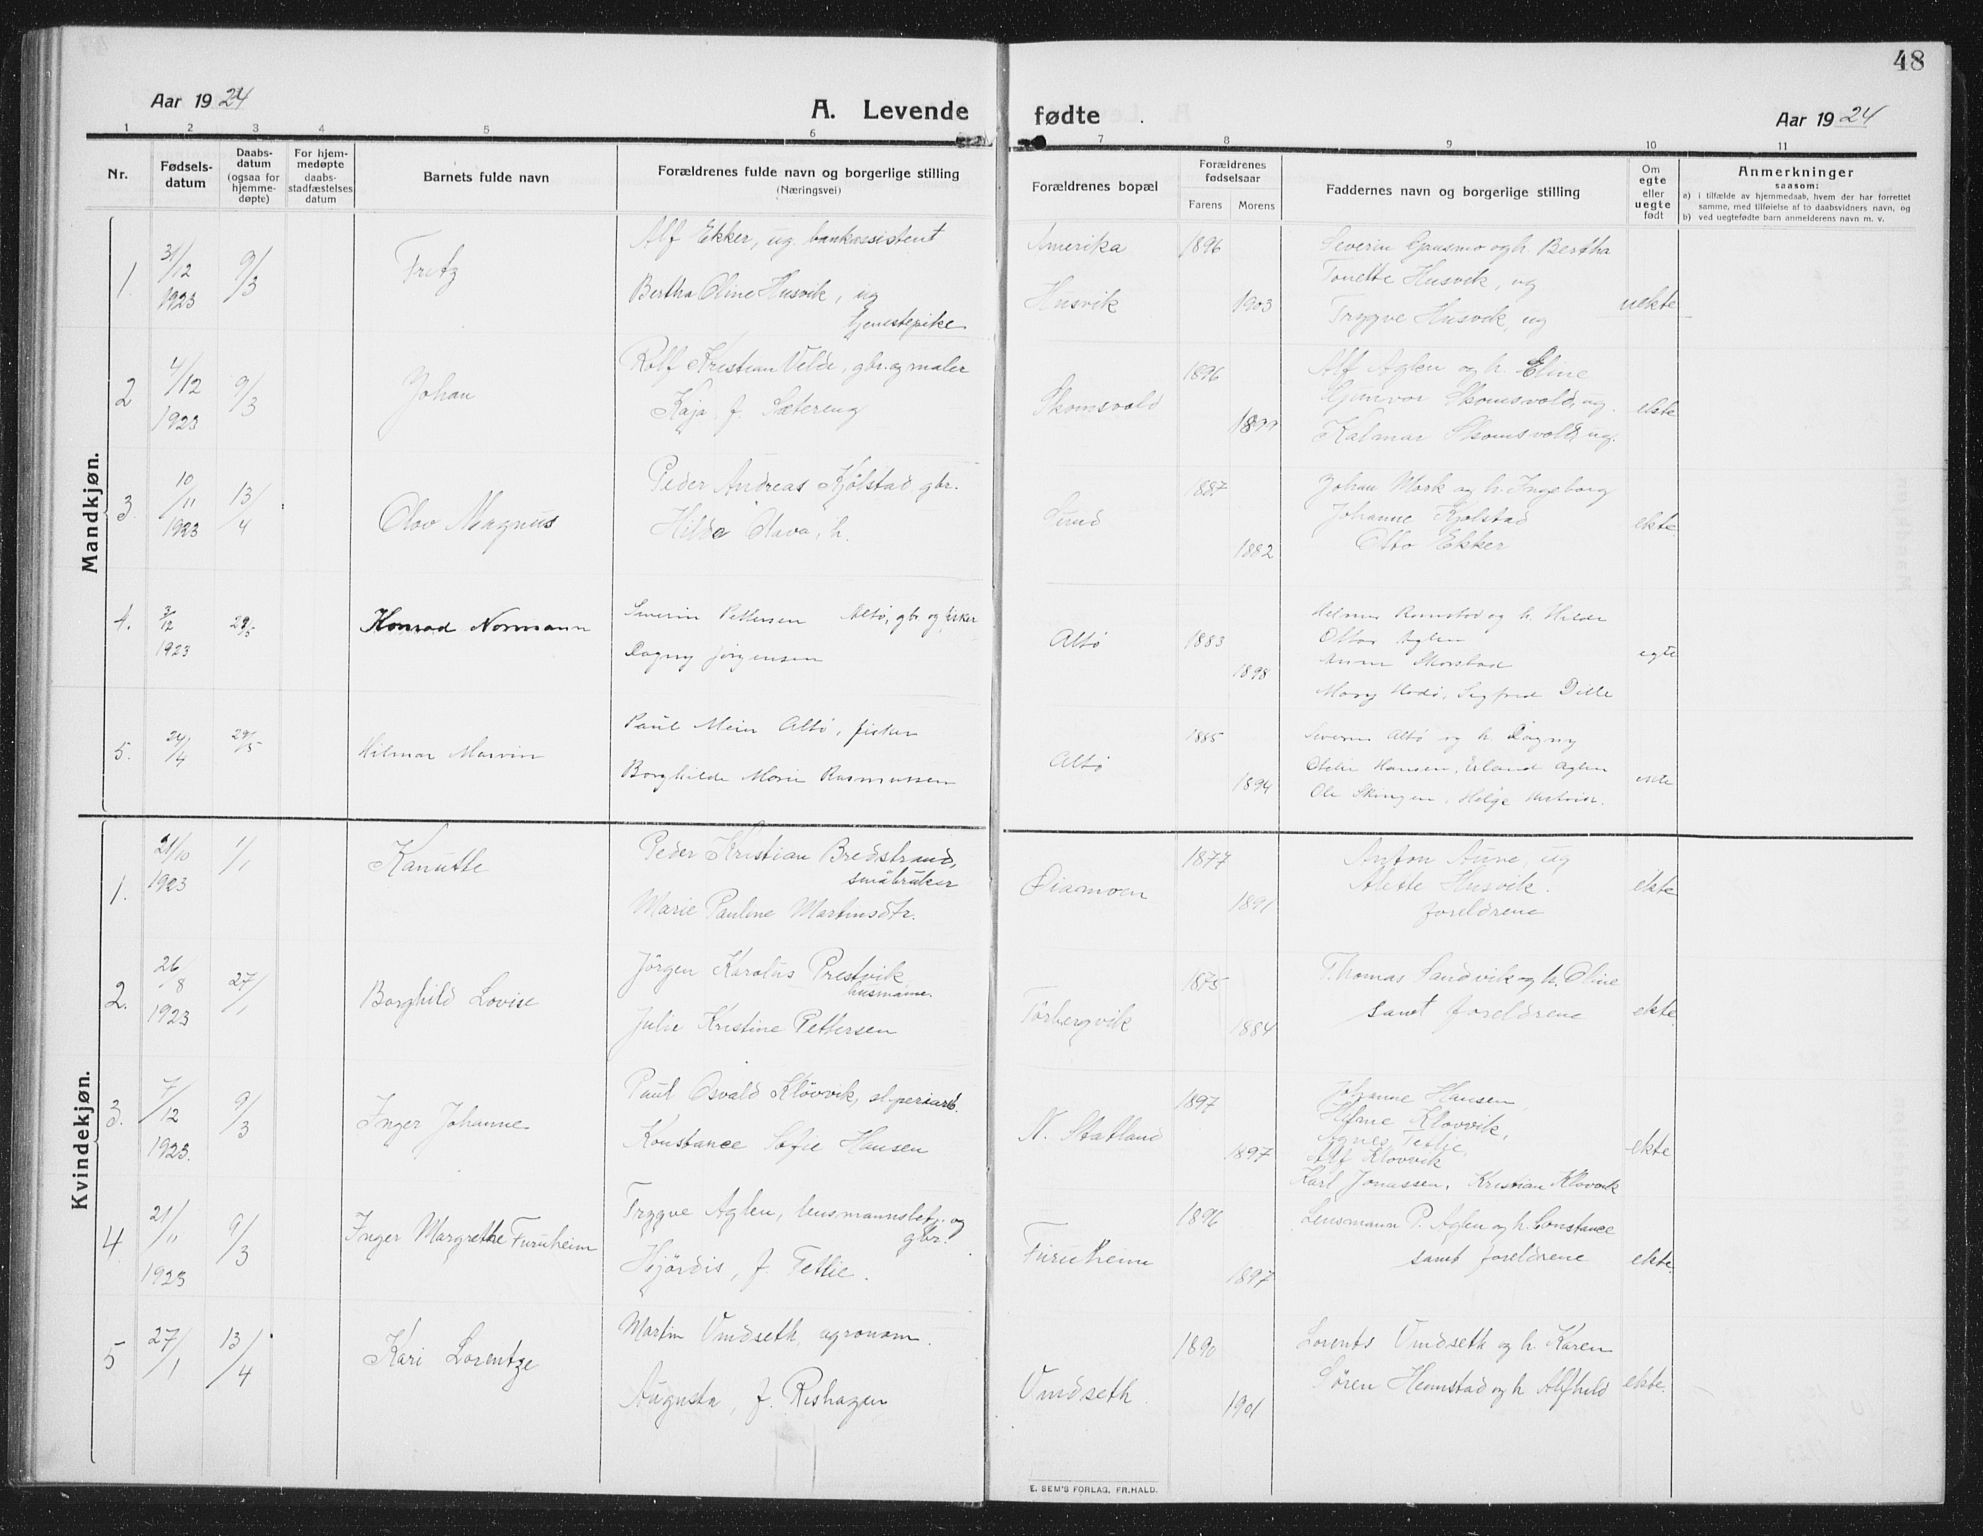 48
Aar 1924
A. Levende fødte
Aar 1924
1 2 3 4 5 6 7 8 9 10 11
Nr.
Fødsels-
datum
Daabs-
datum
(ogsaa for
hjemme-
døpte)
For hjem-
medøpte
daabs-
stadfæstelses
datum
Barnets fulde navn
Forældrenes fulde navn og borgerlige stilling
(Næringsvei)
Forældrenes bopæl
Forældrenes
fødselsaar
Farens Morens
Faddernes navn og borgerlige stilling
Om
egte
eller
uegte
født
Anmerkninger
saasom:
a) i tilfælde av hjemmedaab, hvem der har forrettet
samme, med tilføielse af to daabsvidners navn, og
b) ved uegtefødte barn anmelderens navn m. v.
Mandkjøn.
1. 31/12 1923 9/3 Fritz
Alf Ekker, ug. bankassistent
Bertha Oline Husvik, ug
tjenestepike
Amerika 1896
Husvik 1903
Severin Gausmo og h. Bertha
Tonette Husvik, ug
Trygve Husvik, ug
uekte
2 4/12 1923 9/3 Johan
Rolf Kristian Velde, gbr. og maler
Kaja f. Sætereng
Skomsvold 1896
1899
Alf Aglen og h. Eline
Gunvor Skomsvold, ug.
Kalmar Skomsvold, ug.
ekte
3. 10/11 1923 13/4 Olov Magnus
Peder Andreas Kjølstad gbr.
Hilda Olava, h.
Sund 1887
1882
Johan Mork og h. Ingeborg
Johanne Kjølstad
Otto Ekker
ekte
4. 3/12 1923 29/5 Konrad Normann
Severin Pettersen Altø, gbr. og fisker
Dagny Jørgensen
Altø 1883
1898
Ramstad og h. Hilda
Aglen
Anna Skorstad
Mary Hodø, Sigfred Dille
egte
5. 24/4 29/5 Hilmar Marvin
Paul Mein Altø, fisker
Borghilde Marie Rasmussen
Altø 1885
1894
Severin Altø og h. Dagny
Hansen, Erland Aglen
Ole Skingen, Helge
Kvindekjøn.
1. 21/10 1923 1/1 Kanutte
Peder Kristian Bredstrand,
småbruker
Marie Pauline Martinsdtr.
1877
1891
Anton Aune, ug
Alette Husvik.
foreldrene
ekte
2. 26/8 1923 27/1 Borghild Lovise
Jørgen Karolus Prestvik
husmann.
Julie Kristine Pettersen
Torbergvik 1875
1884
Thomas Sandvik og h. Oline
samt foreldrene
ekte.
3. 7/12 1923. 9/3 Inger Johanne
Paul Osvald Kløvvik, sliperiarb.
Konstance Sofie Hansen
N. Statland 1897
1897
Johanne Hansen,
Kløvvik,
Agnes Tetlie,
Alf Kløvvik
Karl Jonassen, Kristian Kløvvik
ekte
4. 21/11 1923 9/3 Inger Margrethe Furuheim
Trygve Aglen, lensmannsbetj. og
gbr.
Hjørdis, f. Tetlie.
Furuheim 1896
1897
Lensmann P. Aglen og h. Constance
samt foreldrene
ekte.
5 27/1 13/4 Kari Lorentze
Martin Vindseth, agronom.
Augusta, f. Rishagen
Vindseth. 1890
1901
Lorents Vindseth og h. Karen
Søren Hemstad og h. Alfhild
ekte.
E. SEM'S FORLAG, FR.HALD.